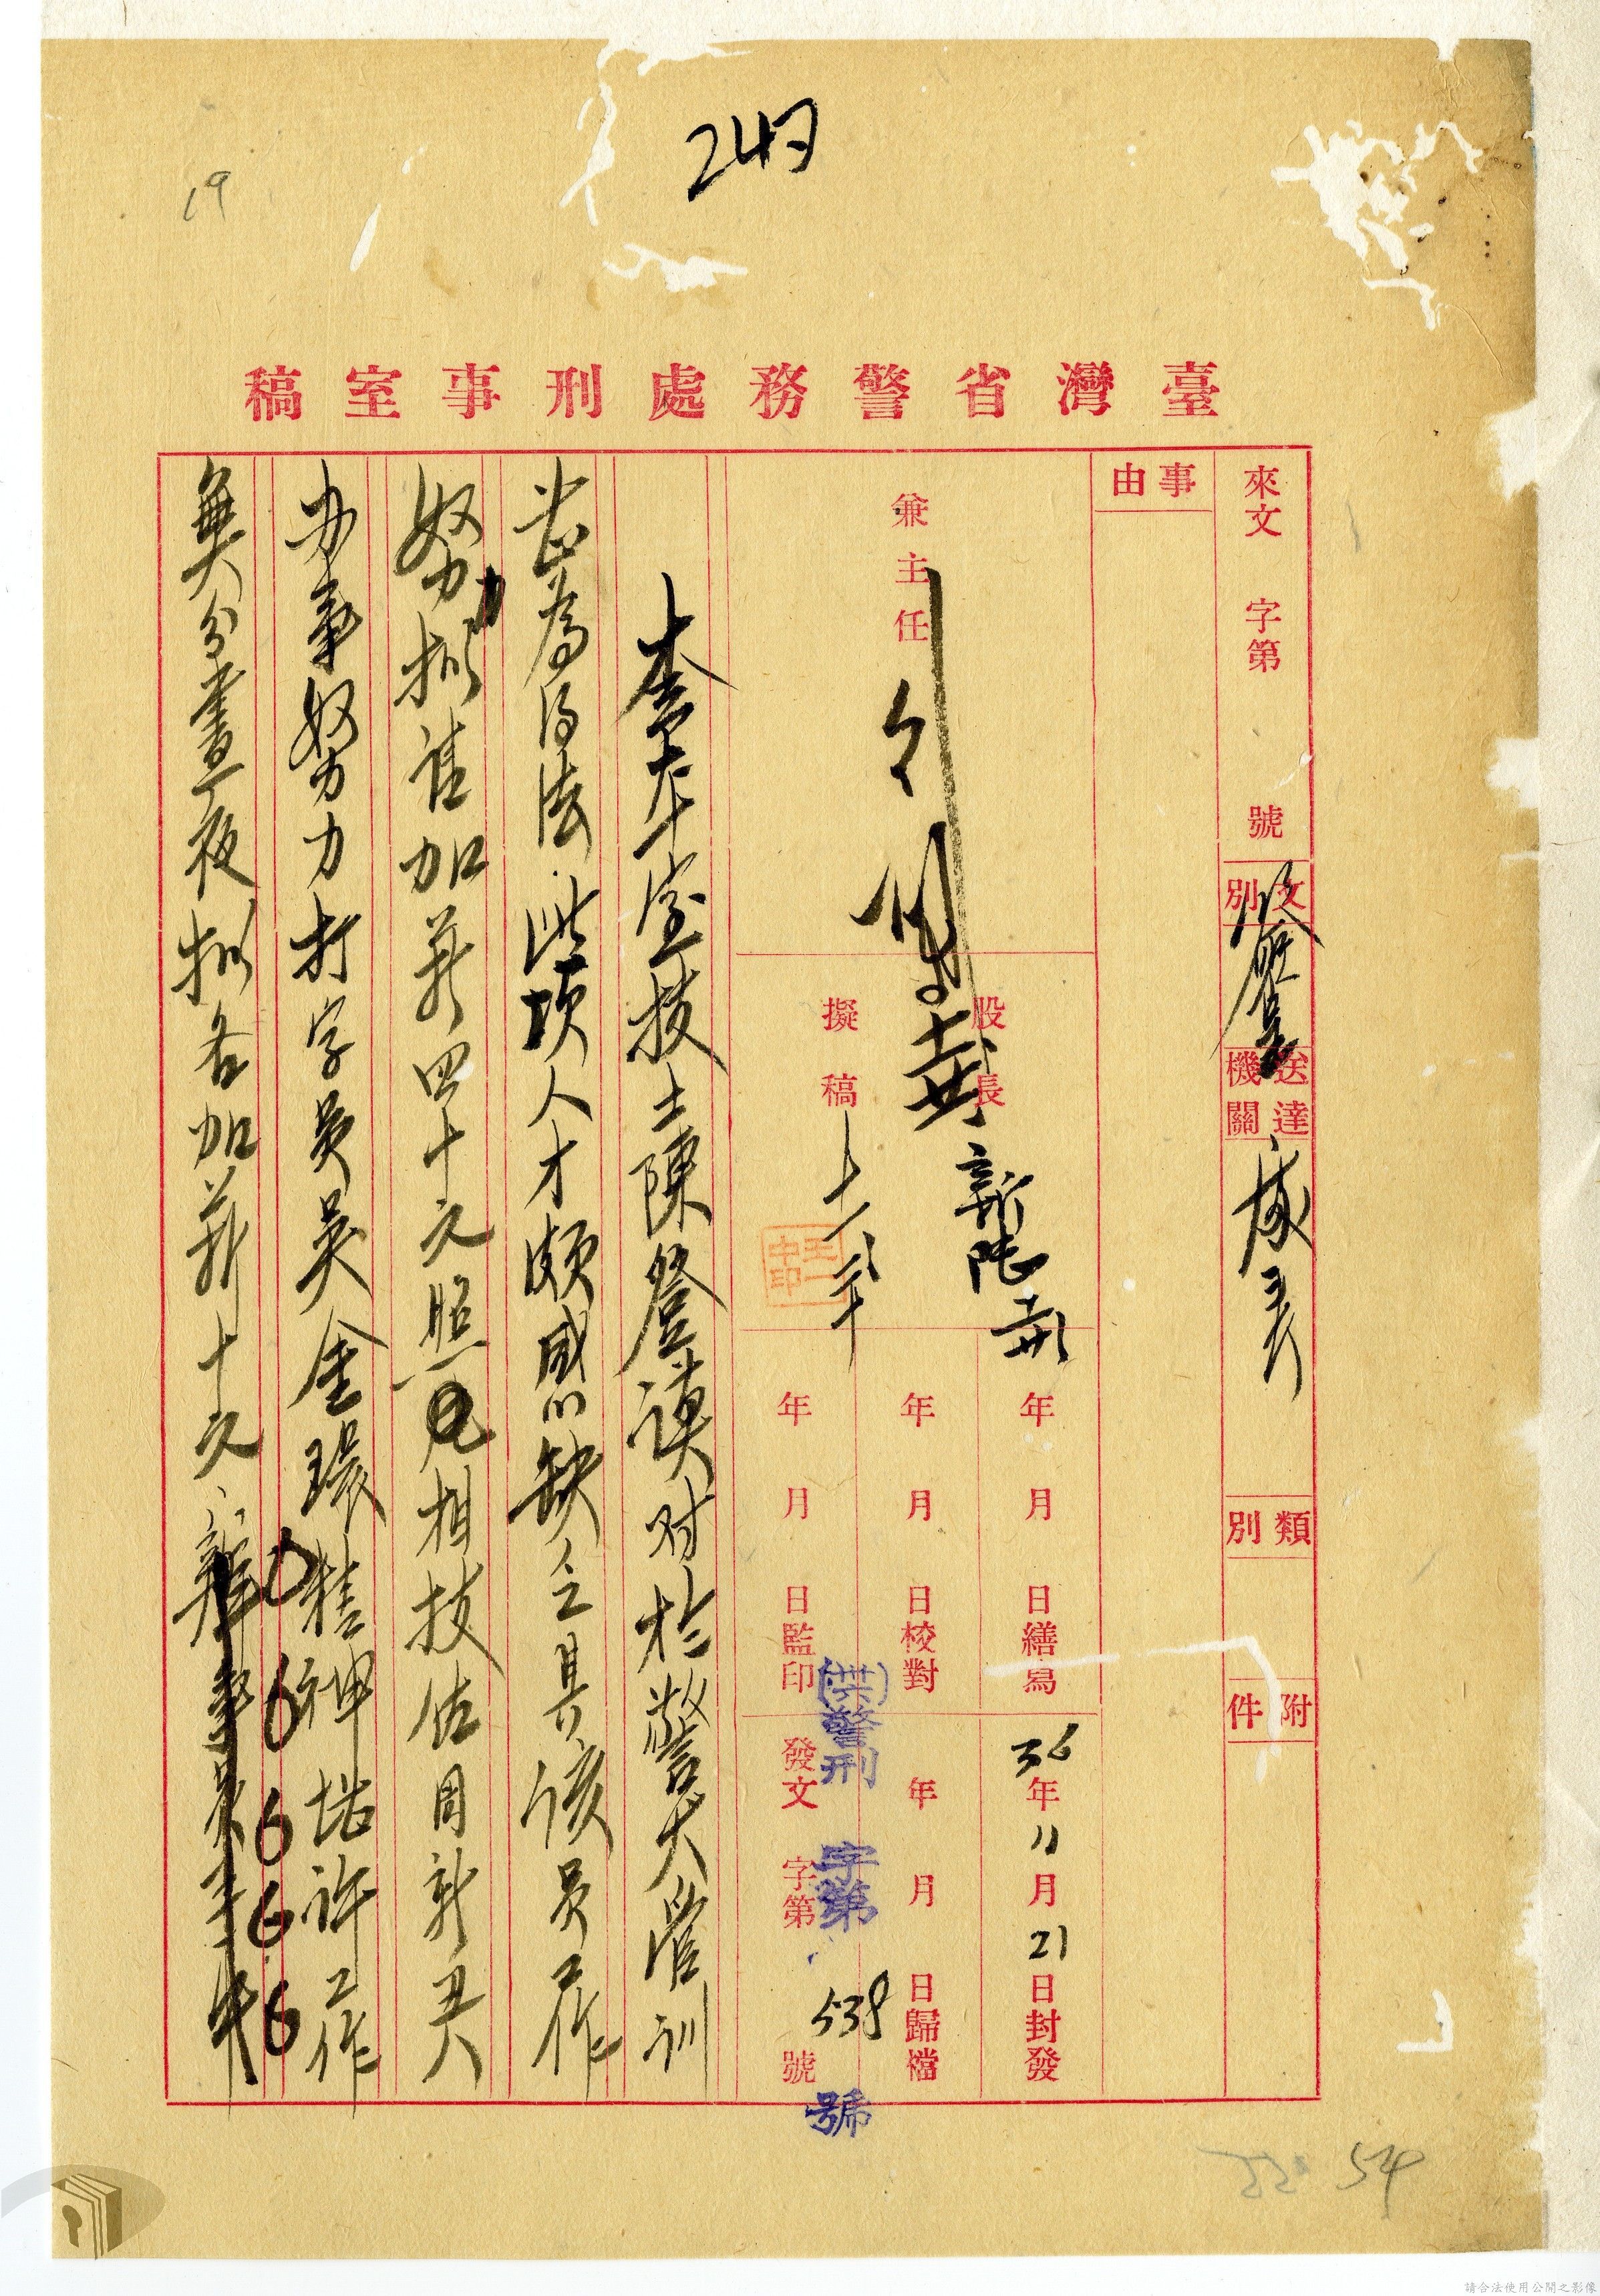 243
19
臺灣省警務處刑事室稿
來文 字第 號
文別 簽呈
送達機關
類別
附件
事由
兼主任
股長
擬稿 十一 二十
王一中印
年 月 日繕寫
年 月 日校對
年 月 日監印
36年11月21日封發
年 月 日歸檔
發文 字第 號
(卅六)警刑 字第 538 號
查本室技士陳登謨对於警犬管訓
為得法此項人才頗感缺乏且該員工作
努力擬請加薪四十元照相技佐周新典
办事努力打字員吳金環精神堪許工作
無分晝夜擬各加薪十元
54
請合法使用公開之影像